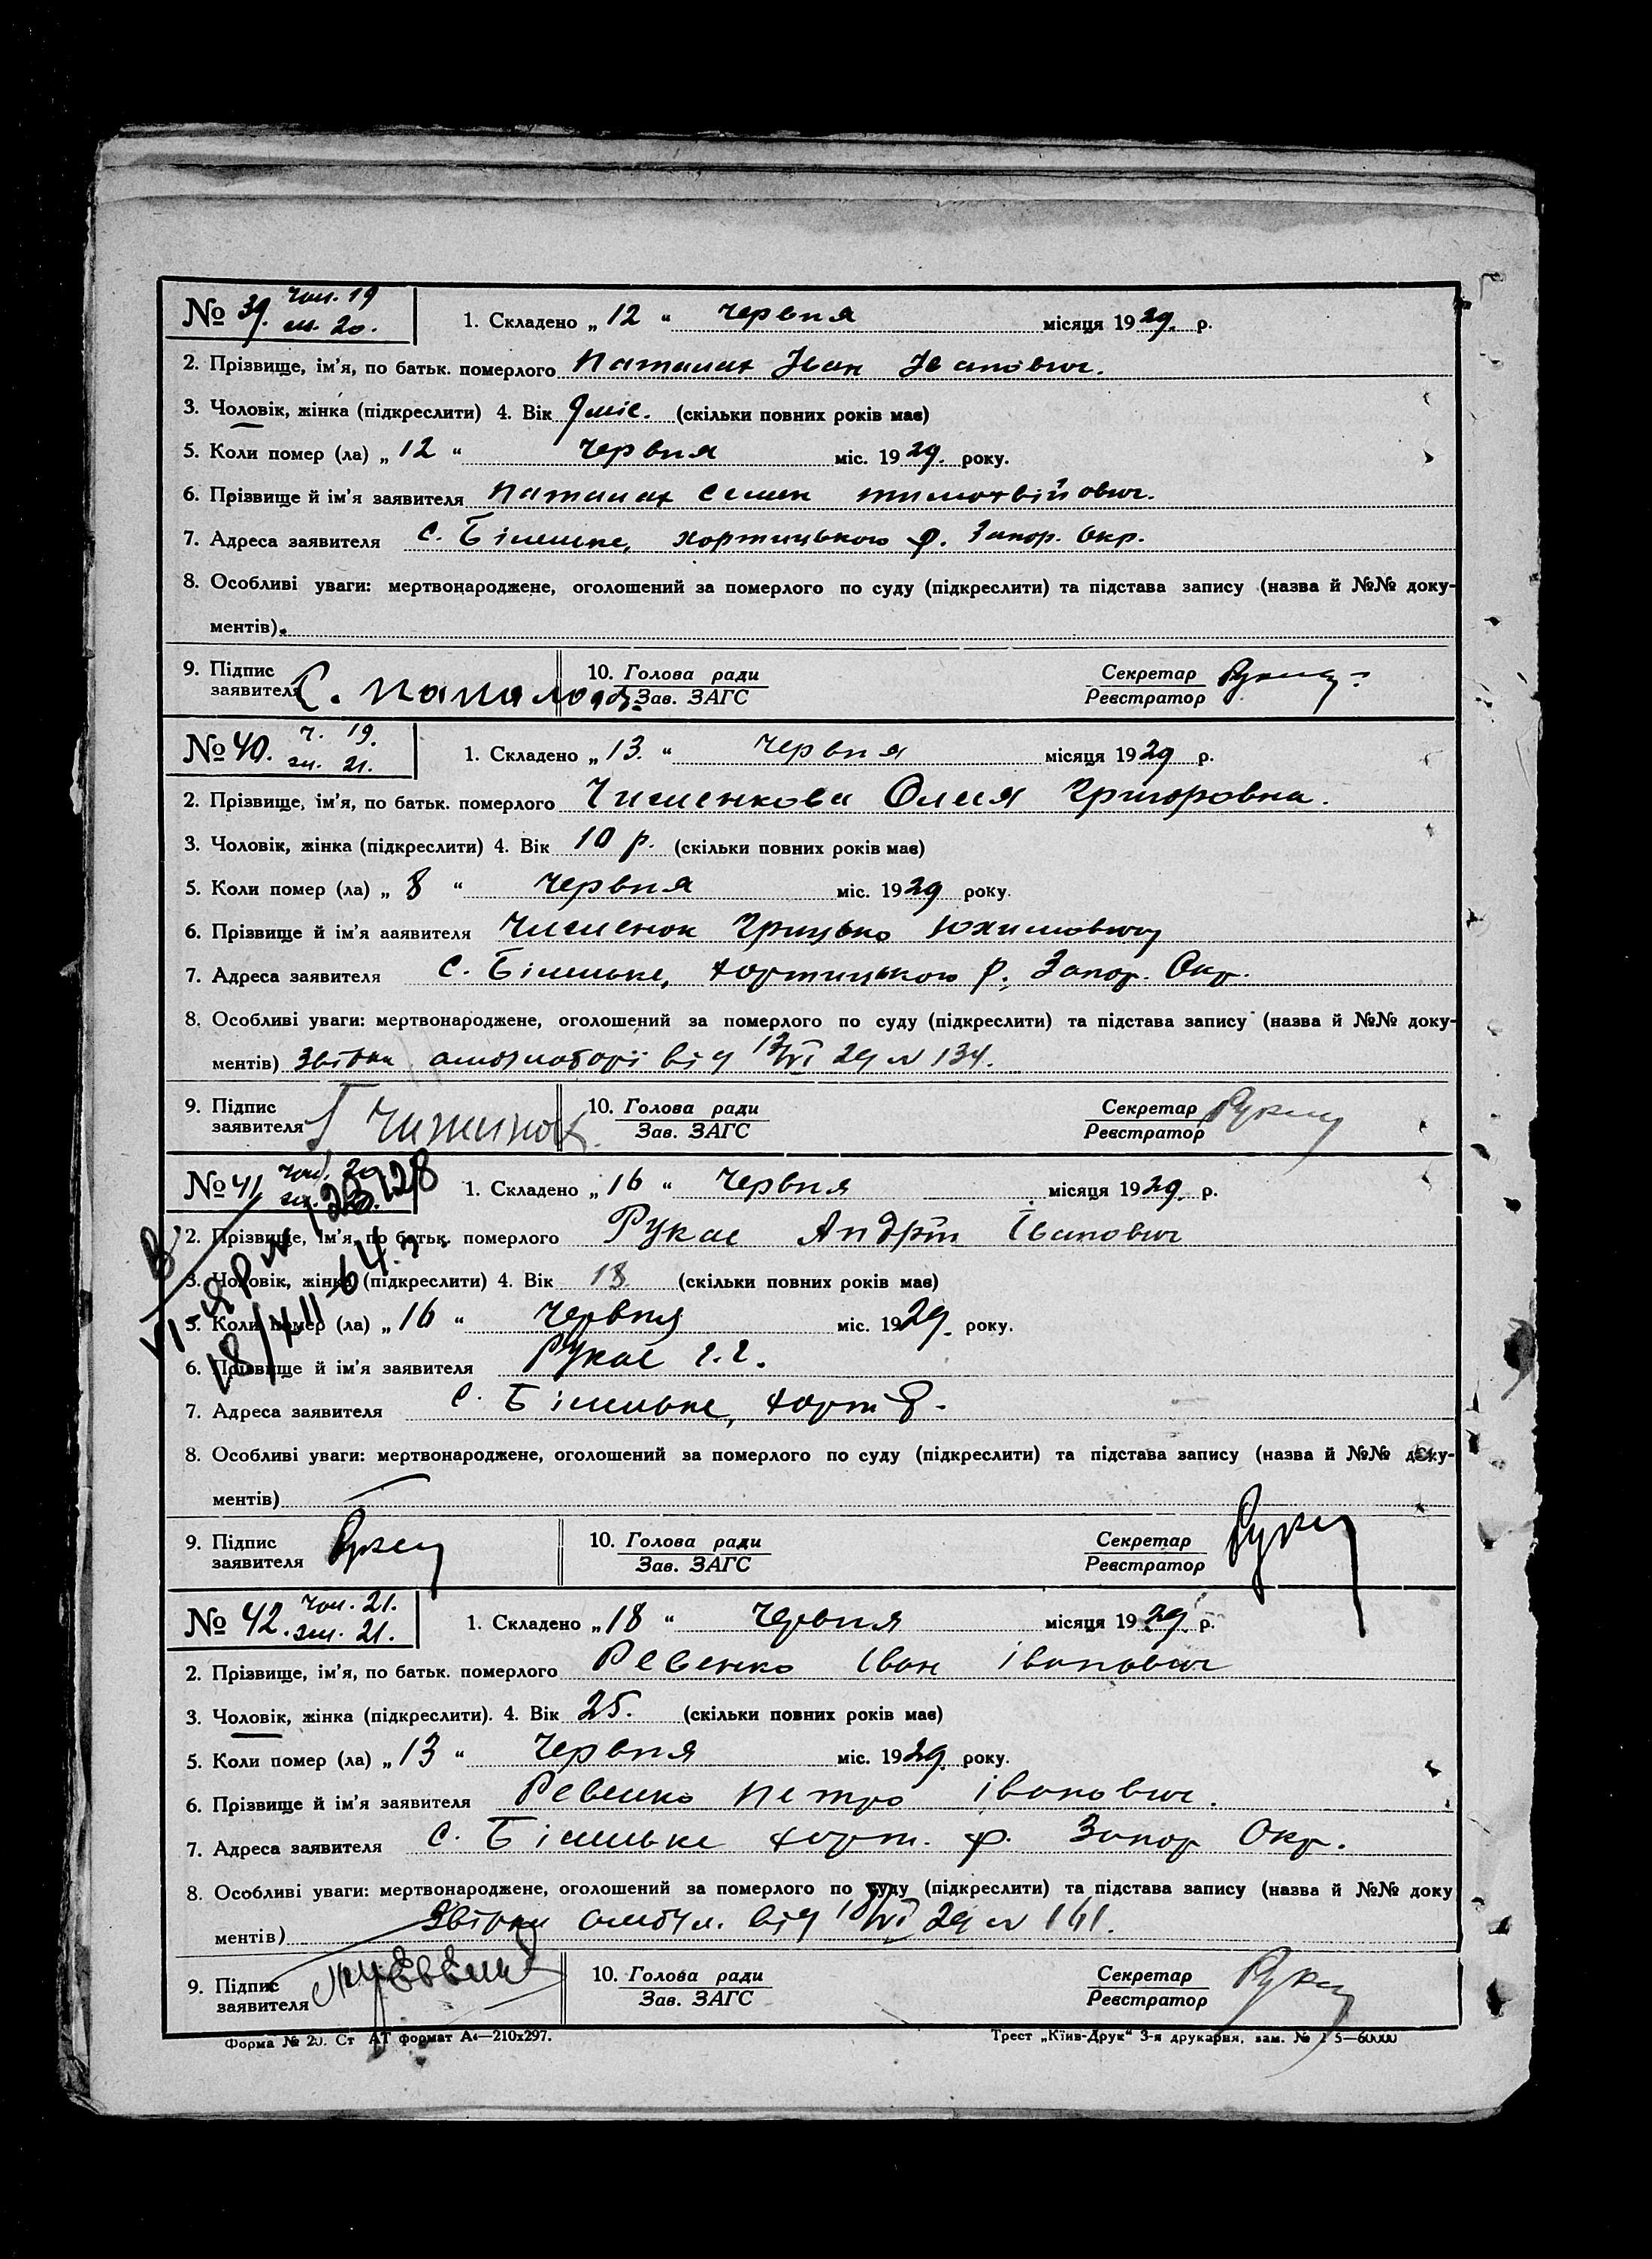 № 39. чол. 19
ж. 20.
1. Складено „ 12 “ червня місяця 1929. р.
2. Прізвище, ім’я, по батьк. померлого Паталах Іван Іванович.
3. Чоловік, жінка (підкреслити) 4. Вік 9 міс. (скільки повних років має)
5. Коли помер (ла) „ 12 “ червня міс. 1929. року.
6. Прізвище й ім’я заявителя Паталах Семен Тимохвійович.
7. Адреса заявителя с. Біленьке, Хортицького р. Запор. Окр.
8. Особливі уваги: мертвонароджене, оголошений за померлого по суду (підкреслити) та підстава запису (назва й №№ доку-
ментів).
9. Підпис 10. Голова ради Секретар
заявителя С. Зав. ЗАГС Реєстратор
№ 40. ч. 19.
ж. 21.
1. Складено „ 13. “ червня місяця 1929 р.
2. Прізвище, ім’я, по батьк. померлого Чиженкова Олія Григоровна.
3. Чоловік, жінка (підкреслити) 4. Вік 10 р. (скільки повних років має)
5. Коли помер (ла) „ 8 “ червня міс. 1929 року.
6. Прізвище й ім’я заявителя Чиженок Грицько Юхимович
7. Адреса заявителя с. Біленьке, Хортицького р. Запор. Окр.
8. Особливі уваги: мертвонароджене, оголошений за померлого по суду (підкреслити) та підстава запису (назва й №№ доку-
ментів) Звідки від 12/VI 29 № 134.
9. Підпис 10. Голова ради Секретар
заявителя Г Чиженок Зав. ЗАГС Реєстратор
№ 41 чол. 20
1. Складено „ 16 “ червня місяця 1929. р.
2. Прізвище, ім’я, по батьк. померлого Рукас Андрій Іванович
3. Чоловік, жінка (підкреслити) 4. Вік 18 (скільки повних років має)
5. Коли помер (ла) „ 16 “ червня міс. 1929. року.
6. Прізвище й ім’я заявителя Рукас І. І.
7. Адреса заявителя с. Біленьке, Хорт р.
8. Особливі уваги: мертвонароджене, оголошений за померлого по суду (підкреслити) та підстава запису (назва й №№ доку-
ментів)
9. Підпис 10. Голова ради Секретар
заявителя Зав. ЗАГС Реєстратор
№ 42. чол. 21.
жін. 21.
1. Складено „ 18 “ червня місяця 1929. р.
2. Прізвище, ім’я, по батьк. померлого Ревенко Іван Іванович
3. Чоловік, жінка (підкреслити). 4. Вік 25. (скільки повних років має)
5. Коли помер (ла) „ 13 “ червня міс. 1929. року.
6. Прізвище й ім’я заявителя Ревенко Петро Іванович.
7. Адреса заявителя с. Біленьке Хорт. р. Запор Окр.
8. Особливі уваги: мертвонароджене, оголошений за померлого по суду (підкреслити) та підстава запису (назва й №№ доку
ментів) Звідки амбул. від 29 № 141.
9. Підпис 10. Голова ради Секретар
заявителя Зав. ЗАГС Реєстратор
Форма № 20. Ст АТ формат А4—210х297. Трест „Київ-Друк“ 3-я друкарня, зам. №